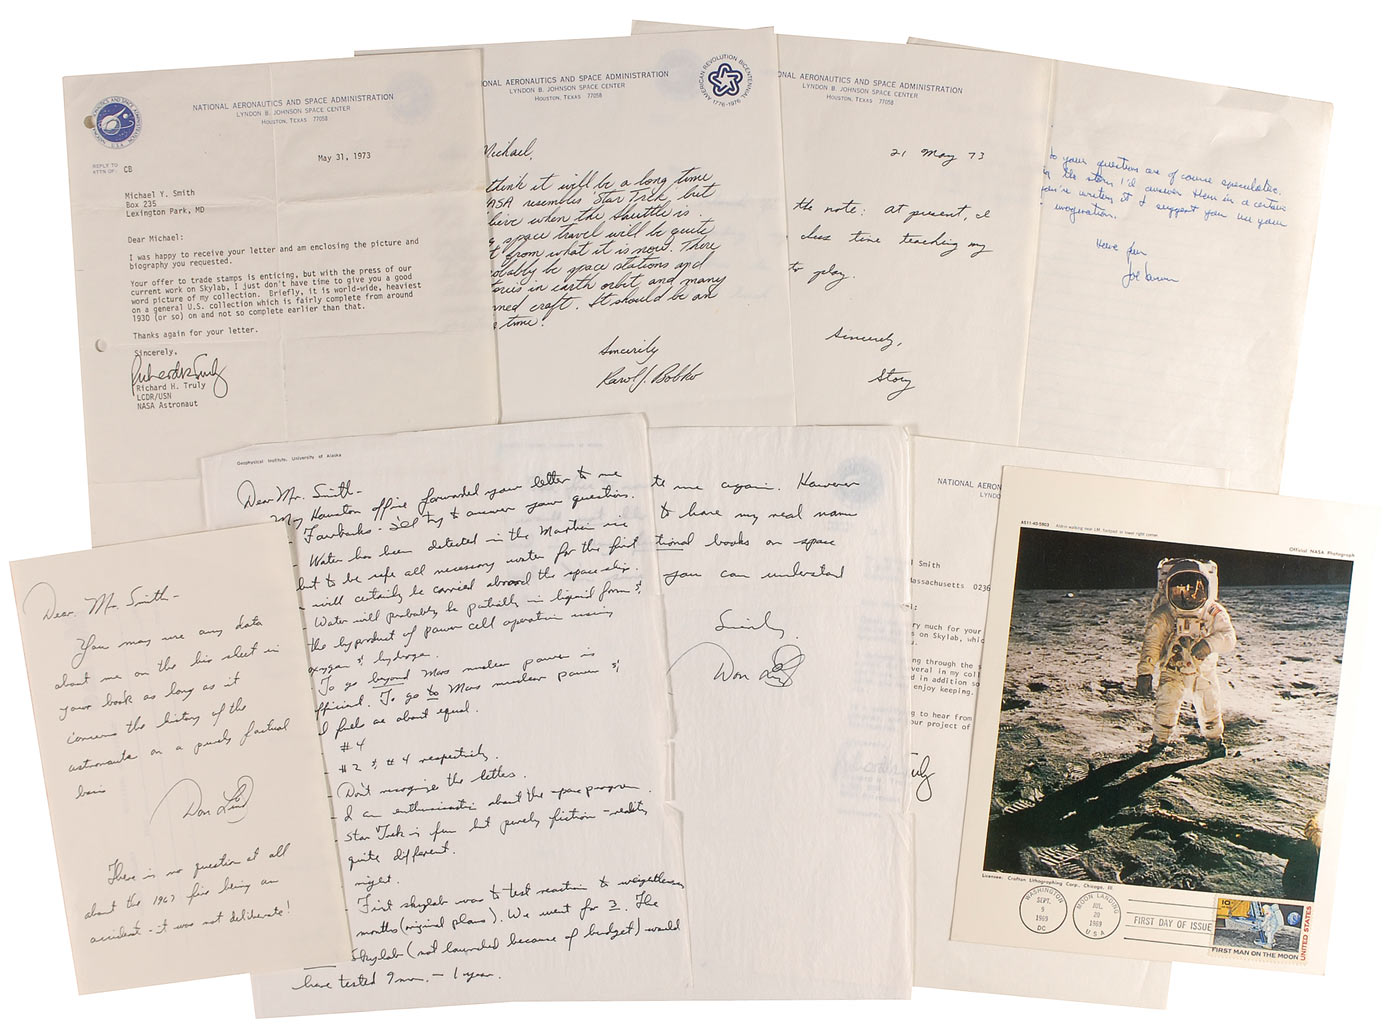 NATIONAL AERONAUTICS AND SPACE ADMINISTRATION
LYNDON B. JOHNSON SPACE CENTER
HOUSTON, TEXAS 77058
May 31, 1973
REPLY TO
ATTN OF: CB
Michael Y. Smith
Box 235
Lexington Park, MD
Dear Michael:
I was happy to receive your letter and am enclosing the picture and
biography you requested.
Your offer to trade stamps is enticing, but with the press of our
current work on Skylab, I just don't have time to give you a good
word picture of my collection. Briefly, it is world-wide, heaviest
on a general U.S. collection which is fairly complete from around
1930 (or so) on and not so complete earlier than that.
Thanks again for your letter.
Sincerely,
Richard H. Truly
LCDR/USN
NASA Astronaut
NATIONAL AERONAUTICS AND SPACE ADMINISTRATION
LYNDON B. JOHNSON SPACE CENTER
HOUSTON, TEXAS 77058
AMERICAN REVOLUTION BICENTENNIAL
1776-1976
Michael,
think it will be a long time
NASA resembles 'Star Trek', but
live when the Shuttle is
space travel will be quite
from what it is now. There
probably be space stations and
in earth orbit, and many
craft. It should be an
time.
Sincerely
Karol J. Bobko
NAL AERONAUTICS AND SPACE ADMINISTRATION
LYNDON B. JOHNSON SPACE CENTER
HOUSTON, TEXAS 77058
21 May 73
the note: at present, I
time teaching my
to play.
Sincerely,
Story
to your question are of course speculative.
the story I'd answer them in a certain
you're writing it I suggest you use your
imagination.
Have fun
Geophysical Institute, University of Alaska
Dear Mr. Smith-
My Houston office forwarded your letter to me
Fairbanks - I'll try to answer your questions.
Water has been detected in the Martian ice
but to be safe all necessary water for the first
will certainly be carried aboard the space ship.
Water will probably be partially in liquid form &
the byproduct of power cell operation using
oxygen & hydrogen.
To go beyond Mars nuclear power is
efficient. To go to Mars nuclear power &
fuels are about equal.
#4
#2 & #4 respectively.
Don't recognize the letters.
I am enthusiastic about the space program.
Star Trek is fun but purely fiction - reality
quite different.
might.
First skylab was to test reaction to weightlessness
months (original plans). We went for 3. The
Skylab (not launched because of budget) would
have tested 9 mo. - 1 year.
te me again. However
to have my real name
tional books on space
you can understand
Sincerely,
Don Lind
Dear Mr. Smith-
You may use any data
about me on the bio sheet in
your book as long as it
concerns the history of the
astronauts on a purely factual
basis
Don Lind
There is no question at all
about the 1967 fire being an
accident - it was not deliberate!
NATIONAL AERON
LYNDO
Smith
Massachusetts 0236
ry much for your
s on Skylab, whic
ng through the s
everal in my coll
d in addition so
enjoy keeping.
ng to hear from
our project of
AS11-40-5903 Aldrin walking near LM, footpad in lower right corner.
Official NASA Photograph
Licensee: Crafton Lithographing Corp., Chicago, Ill.
WASHINGTON
SEPT.
9
1969
DC
MOON LANDING
JUL.
20
1969
USA
FIRST DAY OF ISSUE
10
UNITED STATES
FIRST MAN ON THE MOON